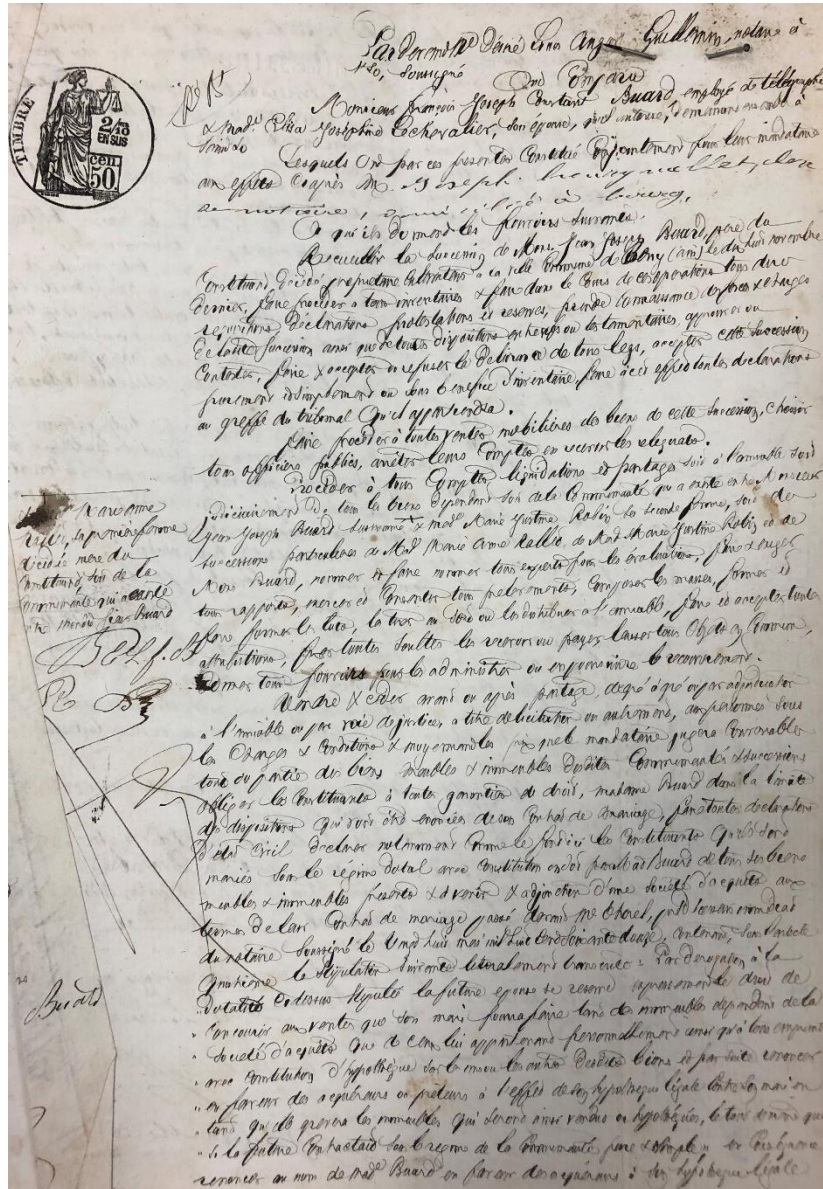 Par devant Me Désiré Léonor Ange Guillemin, notaire à
St Lo, soussigné
Ont Comparu
Monsieur François Joseph Constant Buard, employé de télégraphe
& made Elisa Joséphine Lechevalier, son épouse, qu'il autorise, demeurant ensemble à
Saint Lo
Lesquels Ont par ces présentes Constitué Conjointement pour leur mandataire
aux effets Ci après M. Joseph
notaire, domicilié à bourg,
A qui ils donnent les pouvoirs suivants.
Recueillir la succession de Mons. Jean Joseph Buard, père du
Constituant, décédé propriétaire Cultivateur à la ville Commune de (ain) le dix huit novembre
dernier, faire procéder à tous inventaires & faire dans le Cours de ces opérations tous dires
réquisitions, déclarations protestations et réserves, prendre Connaissance des forces & charges
de ladite succession ainsi que de toutes dispositions entrevifs ou testamentaires, approuver ou
Contester, faire & accepter ou refuser la délivrance de tous legs, accepter cette succession
purement et simplement ou sous bénéfice d'inventaire, faire à cet effet toutes déclarations
au greffe du tribunal qu'il appartiendra.
Faire procéder à toutes ventes mobilières des biens de cette succession, Choisir
tous officiers publics, arrêter leurs Comptes en recevoir les reliquats.
Procéder à tous Comptes liquidations et partages soit à l'amiable soit
judiciairement de tous les biens dépendant soit de la Communauté qui a existé entre Monsieur
Jean Joseph Buard susnommé & made Marie Justine Rabin sa seconde femme, soit des
successions particulières de Made Marie Anne Rallet, de Made Marie Justine Rabin et de
Mons Buard, nommer et faire nommer tous experts pour les évaluations, faire & exiger
tous rapports, exercer et Consentir tous prélèvements, Composer les masses, former et
faire former les lots, les tirer au sort ou les distribuer à l'amiable, faire et accepter toutes
attributions, fixer toutes soultes les recevoir ou payer laisser tous Objets en Commun,
donner tous pouvoirs pour les administrer ou en poursuivre le recouvrement.
Vendre & céder avant ou après partage, de gré à gré ou par adjudication
à l'amiable ou par voie de justice, à titre de licitation ou autrement, aux personnes sous
les Charges & Conditions & moyennant les prix que le mandataire jugera Convenables
tout ou partie des biens meubles & immeubles desdites Communautés & successions
obliger les Constituants à toutes garanties de droit, madame Buard dans la limite
des dispositions qui vont être énoncées de son Contrat de mariage, faire toutes déclarations
d'état Civil déclarer notamment Comme le font ici les Constituants qu'ils sont
mariés sous le régime dotal avec Constitution en dot par Made Buard de tous ses biens
meubles & immeubles présents & à venir & adjonction d'une société d'acquêts aux
termes de leur Contrat de mariage passé devant Me Thorel, prédécesseur immédiat
du notaire soussigné le vingt huit mai mil huit Cent soixante douze, contenant, sous l'article
quatrième la stipulation suivante littéralement transcrite : Par dérogation à la
dotalité Ci dessus stipulée la future épouse se réserve expressément le droit de
" concourir aux ventes que son mari pourra faire tant des immeubles dépendant de la
" société d'acquêts que de Ceux lui appartenant personnellement ainsi qu'à tous emprunts
" avec Constitution d'hypothèque sur les uns ou les autres desdits biens et par suite renoncer
" en faveur des acquéreurs ou prêteurs à l'effet de son hypothèque légale Contre son mari en
" tant qu'elle grèvera les immeubles qui seront ainsi vendus ou hypothéqués, le tout comme que
" si la future Contractait sous le régime de la Communauté pure & simple " en Conséquence
renoncer au nom de made Buard en faveur des acquéreurs à son hypothèque légale
Marie Anne
Rallet, sa première femme
décédée mère du
Constituant, soit de la
Communauté qui a existé
entre mondit sieur Buard
Buard
TIMBRE
2/10
EN SUS
50 cen.